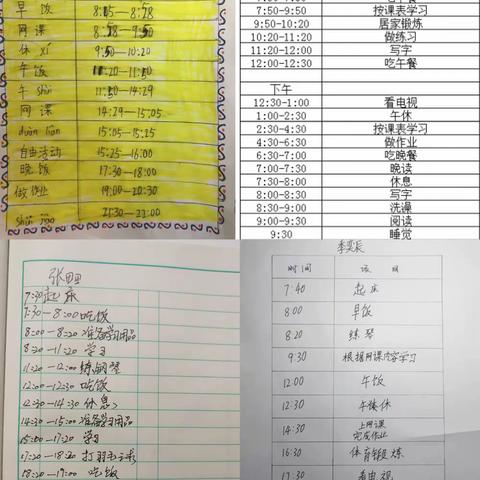 早饭 8:05—8:28
网课 8:28—9:50
休xí 9:50—10:20
午饭 11:20—11:50
午shuì 11:50—14:29
网课 14:29—15:05
duàn liàn 15:05—15:25
自由活动 15:25—16:00
晚饭 17:30—18:00
做作业 19:00—20:30
shuì jiào 21:30—22:00
7:50-9:50 按课表学习
9:50-10:20 居家锻炼
10:20-11:20 做练习
11:20-12:00 写字
12:00-12:30 吃午餐
下午
12:30-1:00 看电视
1:00-2:30 午休
2:30-4:30 按课表学习
4:30-6:30 做作业
6:30-7:00 吃晚餐
7:00-7:30 晚读
7:30-8:00 休息
8:00-8:30 写字
8:30-9:00 洗澡
9:00-9:30 阅读
9:30 睡觉
7:30起床
7:30-8:00吃饭
8:00-8:20准备学习用品
8:20-11:20 学习
11:20-12:00练钢琴
12:00-12:30 吃饭
12:30-14:30 休息
14:30-15:00准备学习用品
15:00-17:20 学习
17:20-18:20 打羽毛球
18:20-19:00 吃饭
时间 项目
7:40 起床
8:00 早饭
8:20 练琴
9:30 根据网课内容学习
12:00 午饭
12:30 午休
14:30 上网课
完成作业
16:30 体育锻炼
17:30 看电视